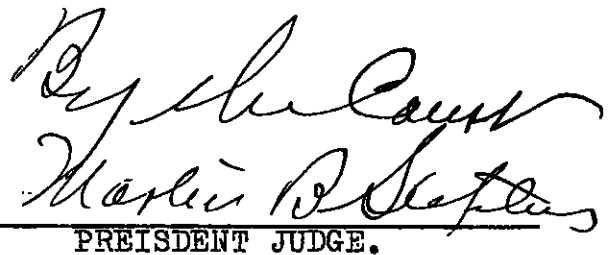 By the Court
Martin B Stephens
PREISDENT JUDGE.